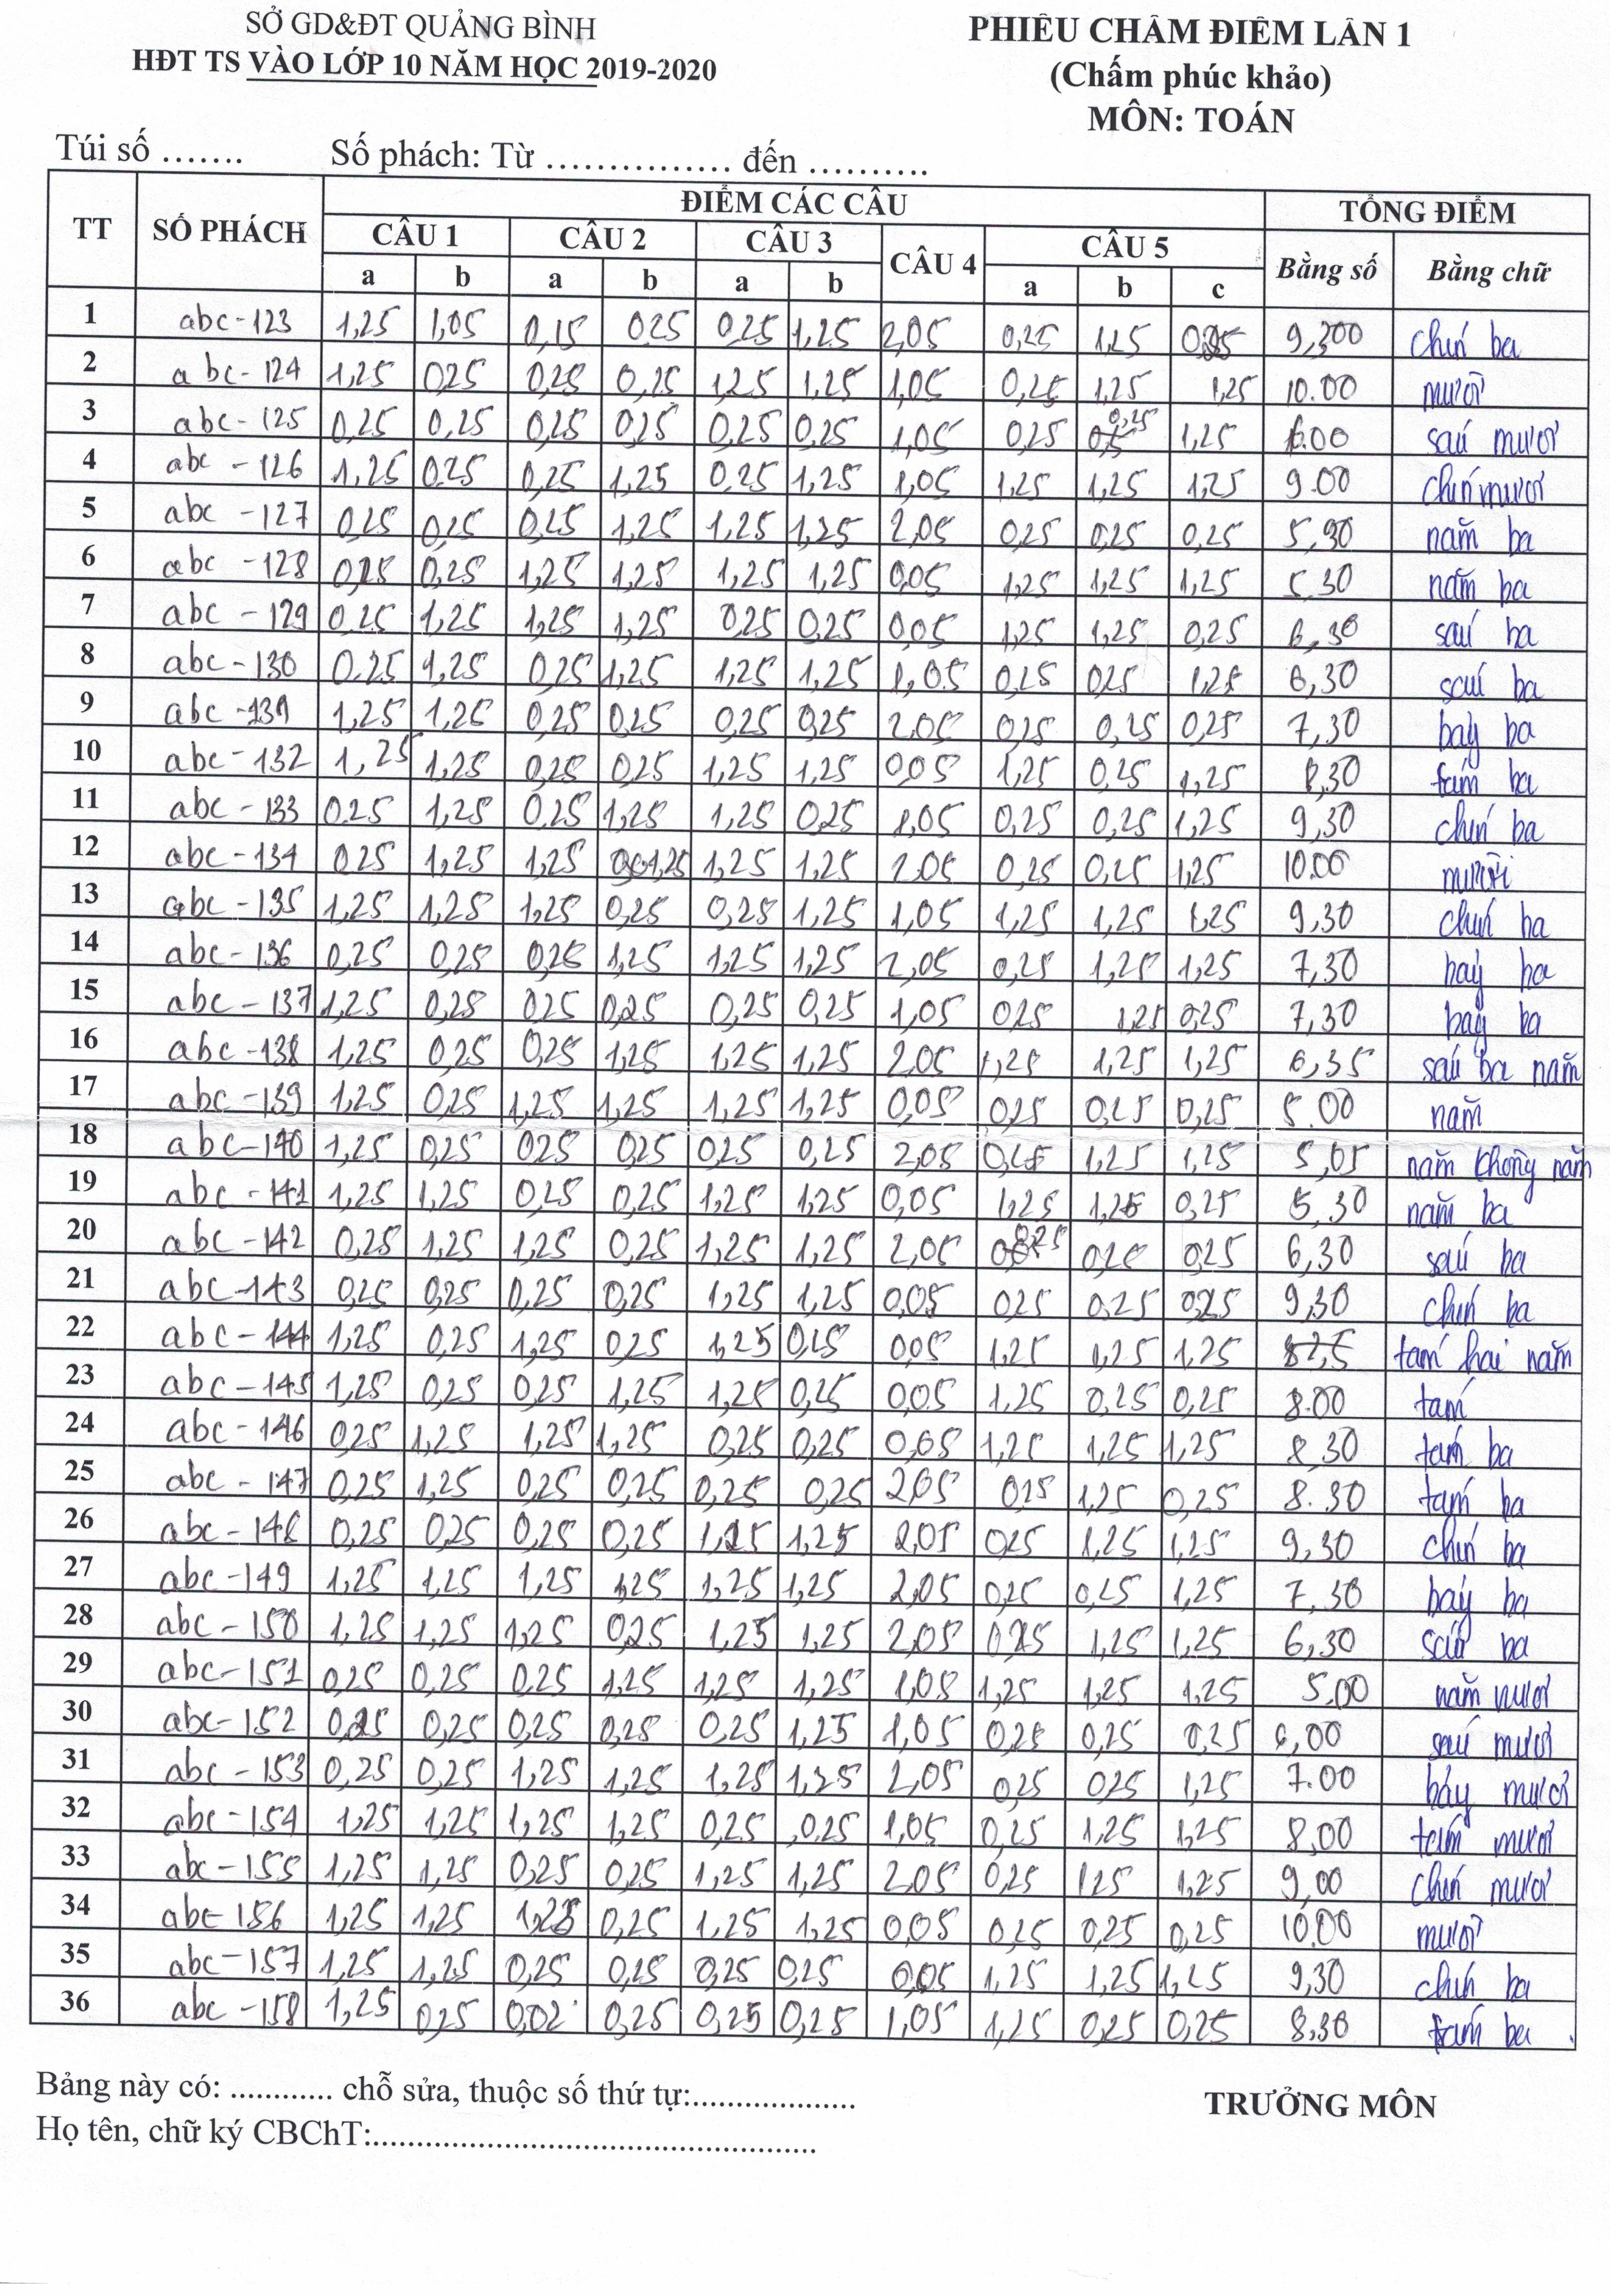 SỞ GD&ĐT QUẢNG BÌNH
HĐT TS VÀO LỚP 10 NĂM HỌC 2019-2020
PHIẾU CHẤM ĐIỂM LẦN 1
(Chấm phúc khảo)
MÔN: TOÁN
Túi số ....... Số phách: Từ ................ đến ..........
TT SỐ PHÁCH ĐIỂM CÁC CÂU TỔNG ĐIỂM
CÂU 1 CÂU 2 CÂU 3 CÂU 4 CÂU 5 Bằng số Bằng chữ
a b a b a b a b c
1 abc-123 1,25 1,05 0,15 0,25 0,25 1,25 2,05 0,25 1,25 9,300 chín ba
2 abc-124 1,25 0,25 0,25 0,25 1,25 1,25 1,05 0,25 1,25 1,25 10.00 mười
3 abc-125 0,25 0,25 0,25 0,25 0,25 0,25 1,05 0,25 0,25 1,25 6.00 sáu mươi
4 abc-126 1,25 0,25 0,25 1,25 0,25 1,25 1,05 1,25 1,25 1,25 9.00 chín mươi
5 abc-127 0,25 0,25 0,25 1,25 1,25 1,25 2,05 0,25 0,25 0,25 5,30 năm ba
6 abc-128 0,25 0,25 1,25 1,25 1,25 1,25 0,05 1,25 1,25 1,25 5.30 năm ba
7 abc-129 0,25 1,25 1,25 1,25 0,25 0,25 0,05 1,25 1,25 0,25 6,30 sáu ba
8 abc-130 0.25 1,25 0,25 1,25 1,25 1,25 1,05 0,25 0,25 1,25 6,30 sáu ba
9 abc-131 1,25 1,25 0,25 0,25 0,25 0,25 2,05 0,25 0,25 0,25 7,30 bảy ba
10 abc-132 1,25 1,25 0,25 0,25 1,25 1,25 0,05 1,25 0,25 1,25 8,30 tám ba
11 abc-133 0.25 1,25 0,25 1,25 1,25 0,25 1,05 0,25 0,25 1,25 9,30 chín ba
12 abc-134 0,25 1,25 1,25 1,25 1,25 1,25 2.05 0,25 0,25 1,25 10.00 mười
13 abc-135 1,25 1,25 1,25 0,25 0,25 1,25 1,05 1,25 1,25 1,25 9,30 chín ba
14 abc-136 0,25 0,25 0,25 1,25 1,25 1,25 2,05 0,25 1,25 1,25 7,30 bảy ba
15 abc-137 1,25 0,25 0,25 0,25 0,25 0,25 1,05 0,25 1,25 0,25 7,30 bảy ba
16 abc-138 1,25 0,25 0,25 1,25 1,25 1,25 2.05 1,25 1,25 1,25 6,35 sáu ba năm
17 abc-139 1,25 0,25 1,25 1,25 1,25 1,25 0,05 0,25 0,25 0,25 5.00 năm
18 abc-140 1,25 0,25 0,25 0,25 0,25 0,25 2,05 0,25 1,25 1,25 5,05 năm không năm
19 abc-141 1,25 1,25 0,25 0,25 1,25 1,25 0,05 1,25 1,25 0,25 5,30 năm ba
20 abc-142 0,25 1,25 1,25 0,25 1,25 1,25 2,05 0,25 0,25 0,25 6,30 sáu ba
21 abc-143 0,25 0,25 0,25 0,25 1,25 1,25 0,05 0,25 0,25 0,25 9,30 chín ba
22 abc-144 1,25 0,25 1,25 0,25 1,25 0,25 0,05 1,25 1,25 1,25 82,5 tám hai năm
23 abc-145 1,25 0,25 0,25 1,25 1,25 0,25 0,05 1,25 0,25 0,25 8.00 tám
24 abc-146 0,25 1,25 1,25 1,25 0,25 0,25 0,05 1,25 1,25 1,25 8.30 tám ba
25 abc-147 0,25 1,25 0,25 0,25 0,25 0,25 2,05 0,25 1,25 0,25 8.30 tám ba
26 abc-148 0,25 0,25 0,25 0,25 1,25 1,25 2,05 0,25 1,25 1,25 9,30 chín ba
27 abc-149 1,25 1,25 1,25 1,25 1,25 1,25 2,05 0,25 0,25 1,25 7,30 bảy ba
28 abc-150 1,25 1,25 1,25 0,25 1,25 1,25 2,05 0,25 1,25 1,25 6,30 sáu ba
29 abc-151 0,25 0,25 0,25 1,25 1,25 1,25 1,05 1,25 1,25 1,25 5,00 năm mươi
30 abc-152 0,25 0,25 0,25 0,25 0,25 1,25 1,05 0,25 0,25 0,25 6,00 sáu mươi
31 abc-153 0,25 0,25 1,25 1,25 1,25 1,25 2,05 0,25 0,25 1,25 7.00 bảy mươi
32 abc-154 1,25 1,25 1,25 1,25 0,25 ,025 1,05 0,25 1,25 1,25 8,00 tám mươi
33 abc-155 1,25 1,25 0,25 0,25 1,25 1,25 2,05 0,25 125 1,25 9,00 chín mươi
34 abc-156 1,25 1,25 1,25 0,25 1,25 1,25 0,05 0,25 0,25 0,25 10,00 mười
35 abc-157 1,25 1,25 0,25 0,25 0,25 0,25 0,05 1,25 1,25 1,25 9,30 chín ba
36 abc-158 1,25 0,25 0,02 0,25 0,25 0,25 1,05 1,25 0,25 0,25 8,30 tám ba
Bảng này có: ............ chỗ sửa, thuộc số thứ tự:....................
TRƯỞNG MÔN
Họ tên, chữ ký CBChT:......................................................